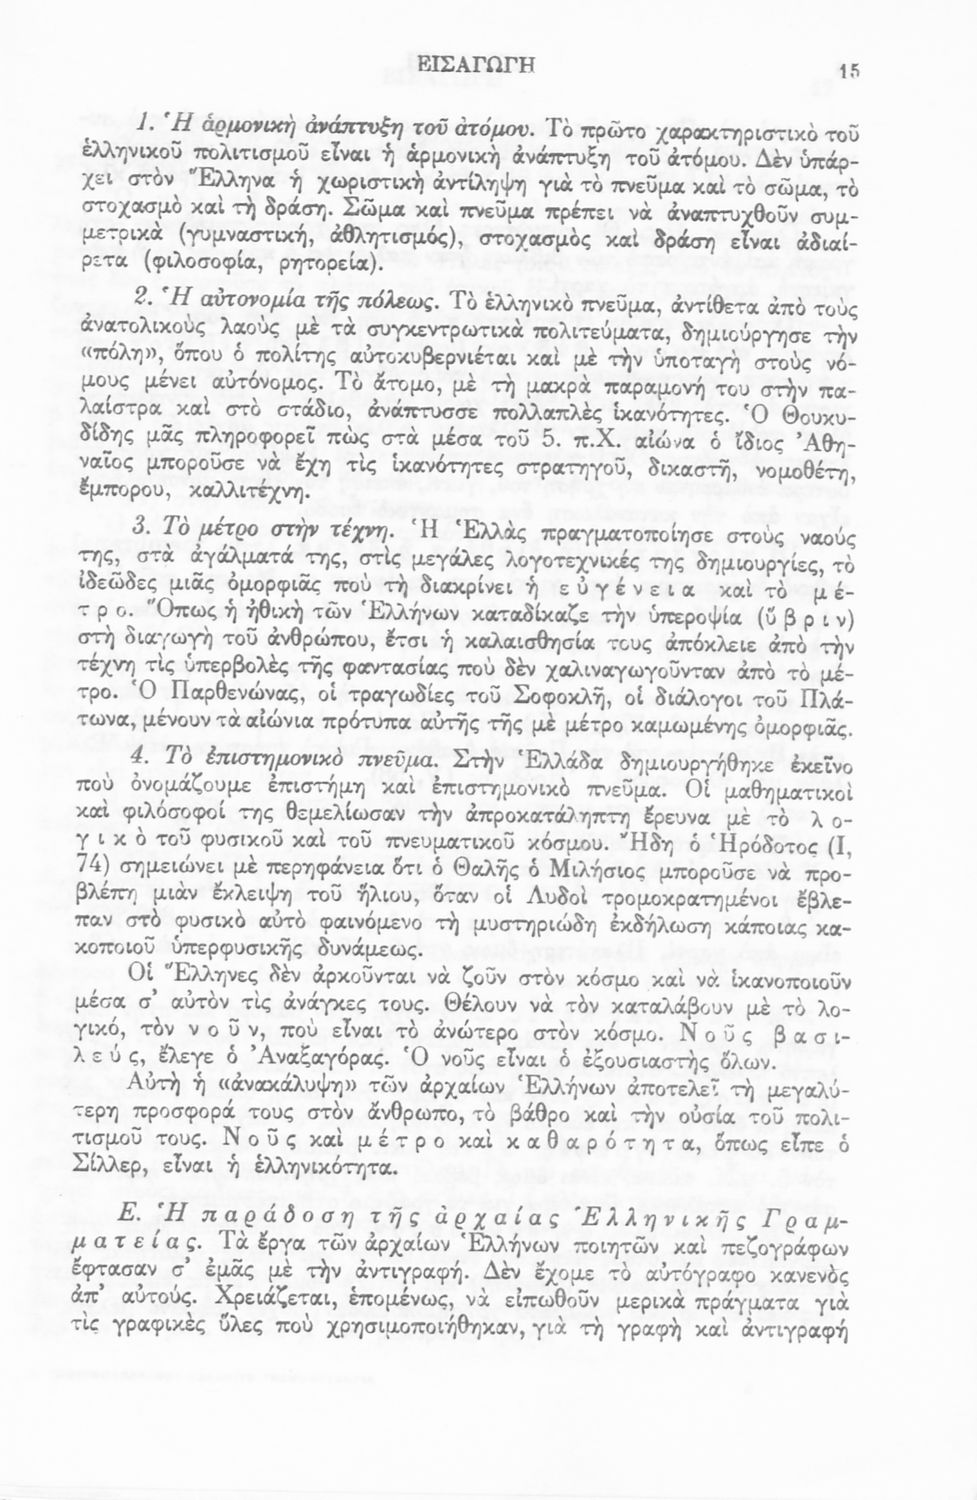 ΕΙΣΑΓΩΓΗ 15
1. Ἡ ἁρμονικὴ ἀνάπτυξη τοῦ ἀτόμου. Τὸ πρῶτο χαρακτηριστικὸ τοῦ
ἑλληνικοῦ πολιτισμοῦ εἶναι ἡ ἁρμονικὴ ἀνάπτυξη τοῦ ἀτόμου. Δὲν ὑπάρ-
χει στὸν Ἕλληνα ἡ χωριστικὴ ἀντίληψη γιὰ τὸ πνεῦμα καὶ τὸ σῶμα, τὸ
στοχασμὸ καὶ τὴ δράση. Σῶμα καὶ πνεῦμα πρέπει νὰ ἀναπτυχθοῦν συμ-
μετρικὰ (γυμναστική, ἀθλητισμός), στοχασμὸς καὶ δράση εἶναι ἀδιαί-
ρετα (φιλοσοφία, ρητορεία).
2. Ἡ αὐτονομία τῆς πόλεως. Τὸ ἑλληνικὸ πνεῦμα, ἀντίθετα ἀπὸ τοὺς
ἀνατολικοὺς λαοὺς μὲ τὰ συγκεντρωτικὰ πολιτεύματα, δημιούργησε τὴν
«πόλη», ὅπου ὁ πολίτης αὐτοκυβερνιέται καὶ μὲ τὴν ὑποταγὴ στοὺς νό-
μους μένει αὐτόνομος. Τὸ ἄτομο, μὲ τὴ μακρὰ παραμονή του στὴν πα-
λαίστρα καὶ στὸ στάδιο, ἀνάπτυσσε πολλαπλὲς ἱκανότητες. Ὁ Θουκυ-
δίδης μᾶς πληροφορεῖ πὼς στὰ μέσα τοῦ 5. π.Χ. αἰώνα ὁ ἴδιος Ἀθη-
ναῖος μποροῦσε νὰ ἔχη τὶς ἱκανότητες στρατηγοῦ, δικαστῆ, νομοθέτη,
ἔμπορου, καλλιτέχνη.
3. Τὸ μέτρο στὴν τέχνη. Ἡ Ἑλλὰς πραγματοποίησε στοὺς ναούς
της, στὰ ἀγάλματά της, στὶς μεγάλες λογοτεχνικές της δημιουργίες, τὸ
ἰδεῶδες μιᾶς ὀμορφιᾶς ποὺ τὴ διακρίνει ἡ ε ὐ γ έ ν ε ι α καὶ τὸ μ έ-
τ ρ ο. Ὅπως ἡ ἠθικὴ τῶν Ἑλλήνων καταδίκαζε τὴν ὑπεροψία (ὕ β ρ ι ν)
στὴ διαγωγὴ τοῦ ἀνθρώπου, ἔτσι ἡ καλαισθησία τους ἀπόκλειε ἀπὸ τὴν
τέχνη τὶς ὑπερβολὲς τῆς φαντασίας ποὺ δὲν χαλιναγωγοῦνταν ἀπὸ τὸ μέ-
τρο. Ὁ Παρθενώνας, οἱ τραγωδίες τοῦ Σοφοκλῆ, οἱ διάλογοι τοῦ Πλά-
τωνα, μένουν τὰ αἰώνια πρότυπα αὐτῆς τῆς μὲ μέτρο καμωμένης ὀμορφιᾶς.
4. Τὸ ἐπιστημονικὸ πνεῦμα. Στὴν Ἑλλάδα δημιουργήθηκε ἐκεῖνο
ποὺ ὀνομάζουμε ἐπιστήμη καὶ ἐπιστημονικὸ πνεῦμα. Οἱ μαθηματικοὶ
καὶ φιλόσοφοί της θεμελίωσαν τὴν ἀπροκατάληπτη ἔρευνα μὲ τὸ λ ο-
γ ι κ ὸ τοῦ φυσικοῦ καὶ τοῦ πνευματικοῦ κόσμου. Ἤδη ὁ Ἡρόδοτος (Ι,
74) σημειώνει μὲ περηφάνεια ὅτι ὁ Θαλῆς ὁ Μιλήσιος μποροῦσε νὰ προ-
βλέπη μιὰν ἔκλειψη τοῦ ἥλιου, ὅταν οἱ Λυδοὶ τρομοκρατημένοι ἔβλε-
παν στὸ φυσικὸ αὐτὸ φαινόμενο τὴ μυστηριώδη ἐκδήλωση κάποιας κα-
κοποιοῦ ὑπερφυσικῆς δυνάμεως.
Οἱ Ἕλληνες δὲν ἀρκοῦνται νὰ ζοῦν στὸν κόσμο καὶ νὰ ἱκανοποιοῦν
μέσα σ' αὐτὸν τὶς ἀνάγκες τους. Θέλουν νὰ τὸν καταλάβουν μὲ τὸ λο-
γικό, τὸν ν ο ῦ ν, ποὺ εἶναι τὸ ἀνώτερο στὸν κόσμο. Ν ο ῦ ς β α σ ι-
λ ε ύ ς, ἔλεγε ὁ Ἀναξαγόρας. Ὁ νοῦς εἶναι ὁ ἐξουσιαστὴς ὅλων.
Αὐτὴ ἡ «ἀνακάλυψη» τῶν ἀρχαίων Ἑλλήνων ἀποτελεῖ τὴ μεγαλύ-
τερη προσφορά τους στὸν ἄνθρωπο, τὸ βάθρο καὶ τὴν οὐσία τοῦ πολι-
τισμοῦ τους. Ν ο ῦ ς καὶ μ έ τ ρ ο καὶ κ α θ α ρ ό τ η τ α, ὅπως εἶπε ὁ
Σίλλερ, εἶναι ἡ ἑλληνικότητα.
Ε. Ἡ π α ρ ά δ ο σ η τ ῆ ς ἀ ρ χ α ί α ς Ἑ λ λ η ν ι κ ῆ ς Γ ρ α μ-
μ α τ ε ί α ς. Τὰ ἔργα τῶν ἀρχαίων Ἑλλήνων ποιητῶν καὶ πεζογράφων
ἔφτασαν σ' ἐμᾶς μὲ τὴν ἀντιγραφή. Δὲν ἔχομε τὸ αὐτόγραφο κανενὸς
ἀπ' αὐτούς. Χρειάζεται, ἑπομένως, νὰ εἰπωθοῦν μερικὰ πράγματα γιὰ
τὶς γραφικὲς ὕλες ποὺ χρησιμοποιήθηκαν, γιὰ τὴ γραφὴ καὶ ἀντιγραφὴ